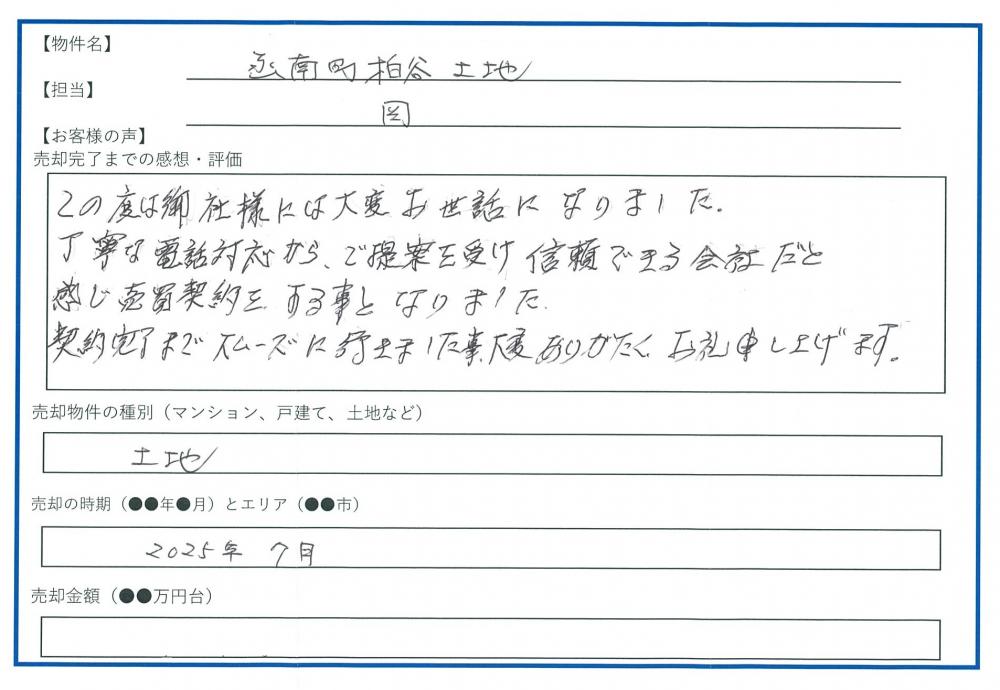 【物件名】
函南町柏谷 土地
【担当】
岡
【お客様の声】
売却完了までの感想・評価
この度は御社様には大変お世話になりました。
丁寧な電話対応から、ご提案を受け信頼できる会社だと
感じ売買契約をする事となりました。
契約完了までスムーズに行きました事、大変ありがたくお礼申し上げます。
売却物件の種別（マンション、戸建て、土地など）
土地
売却の時期（●●年●月）とエリア（●●市）
2025年 7月
売却金額（●●万円台）